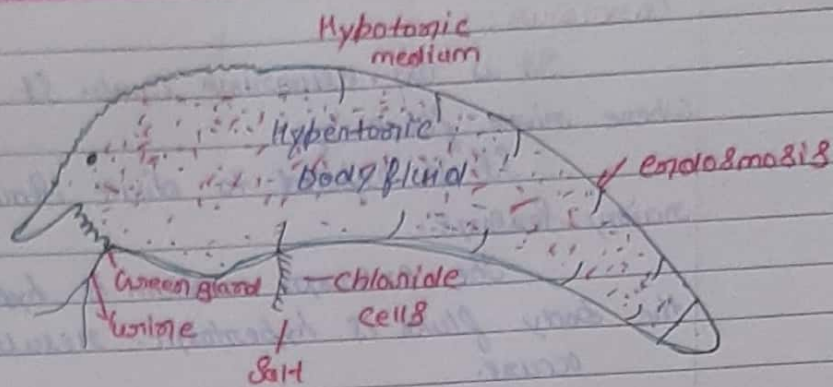 Hypotonic
medium
Hypentonic
body fluid
endosmosis
Green gland
Chlonide
cells
Urine
Salt